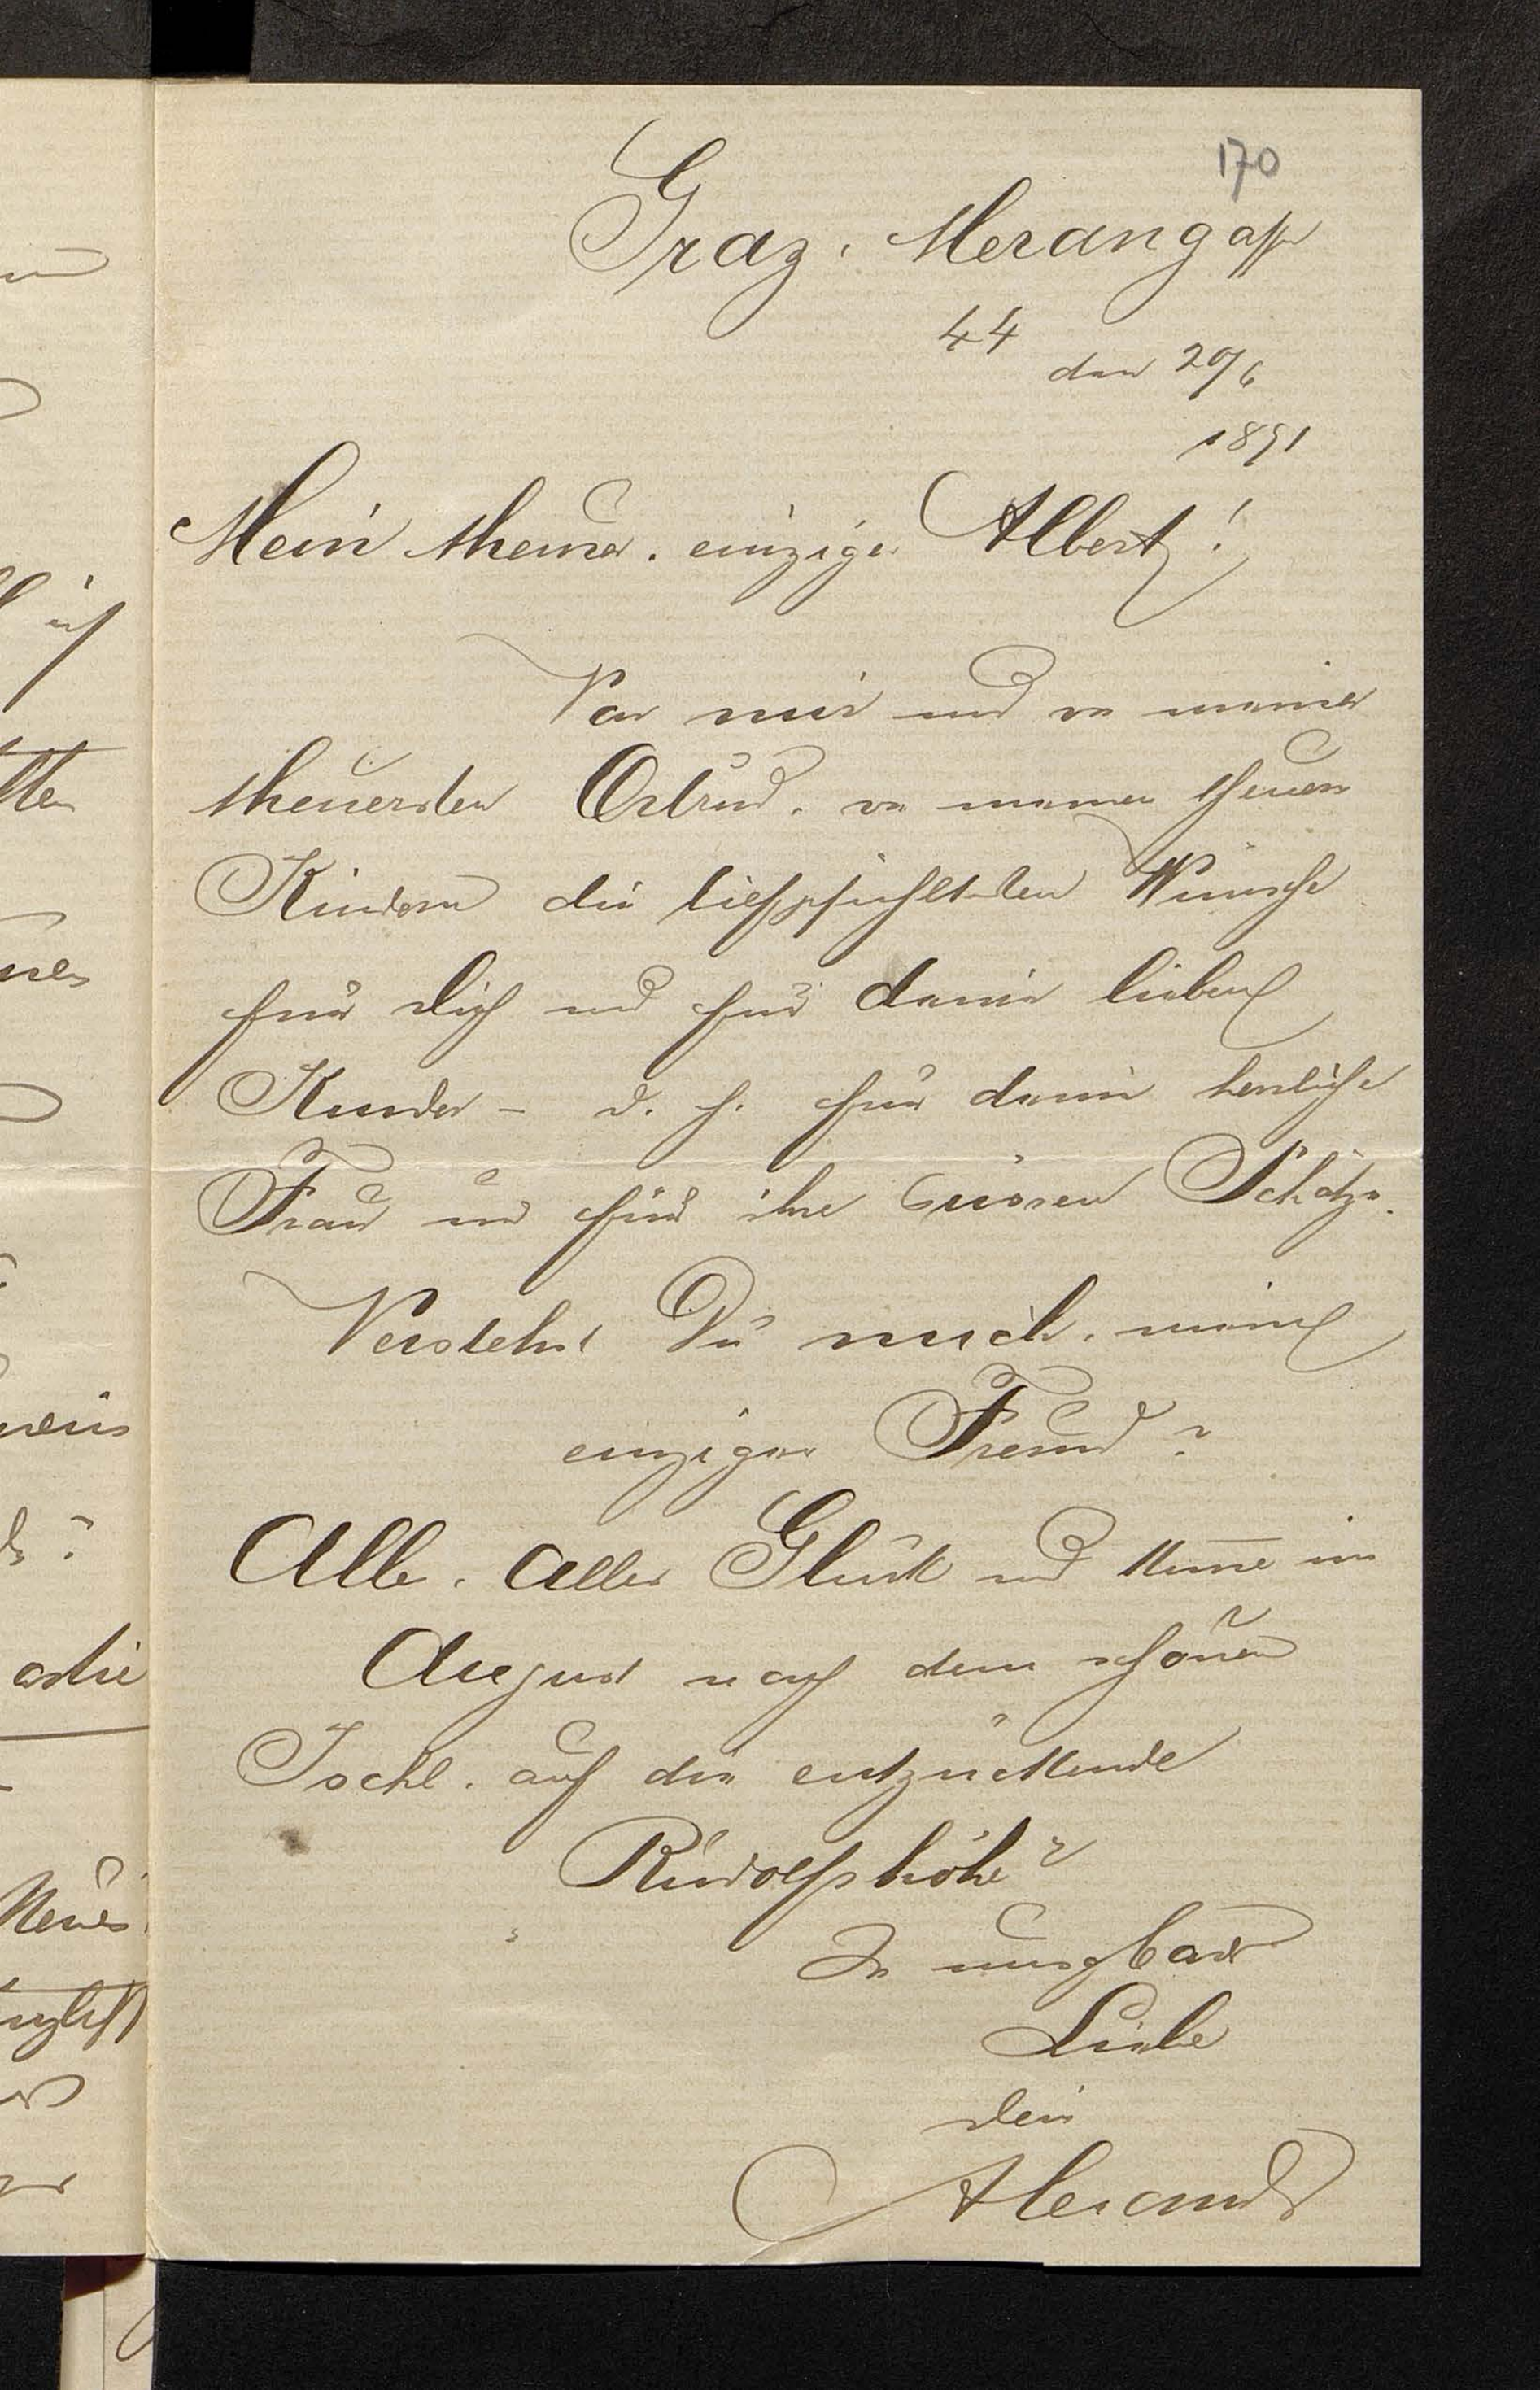 170
Graz, Merangasse
44
den 29/6
1891
Mein theurer, einziger Albert!
Von mir und von meiner
theuersten Ortrud, von meinen theuern
Kindern die tiefgefühltesten Wünsche
für Dich und für deine lieben
Kinder - d. h. für deine herrliche
Frau und für ihre süssen Schätze.
Verstehst Du mich, mein
einziger Freund?
Alle, alles Glück und komme im
August nach dem schönen
Ischl, auf die entzückende
Rudolfshöhe
In
Liebe
dein
Alexander